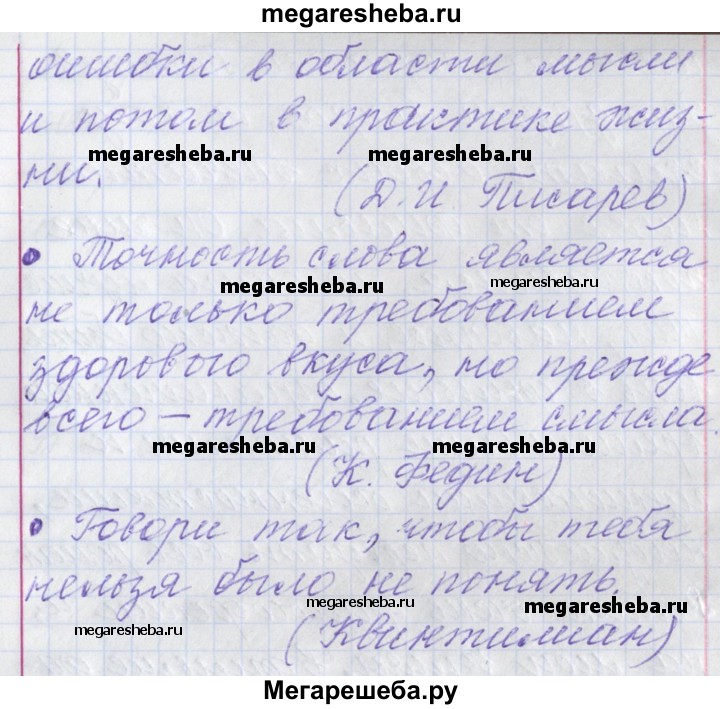 megaresheba.ru
ошибки в области мысли
и потом в практике жиз-
megaresheba.ru megaresheba.ru
ни.
(Д. И. Писарев)
• Точность слова является
megaresheba.ru megaresheba.ru
не только требованием
здорового вкуса, но прежде
всего – требованием смысла.
megaresheba.ru megaresheba.ru
(К. Федин)
• Говори так, чтобы тебя
нельзя было не понять.
megaresheba.ru megaresheba.ru
megaresheba.ru
(Квинтилиан)
Мегарешеба.ру